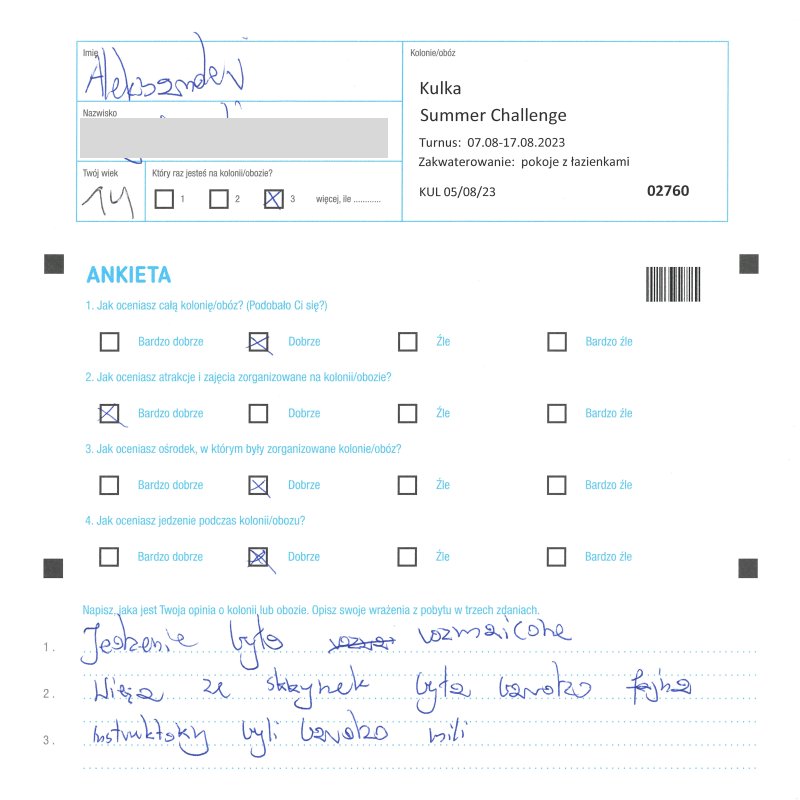 Imię
Aleksander
Kolonie/obóz
Kulka
Summer Challenge
Turnus: 07.08-17.08.2023
Zakwaterowanie: pokoje z łazienkami
KUL 05/08/23 02760
Nazwisko
Twój wiek
14
Który raz jesteś na kolonii/obozie?
1 2 3 więcej, ile ............
ANKIETA
1. Jak oceniasz całą kolonię/obóz? (Podobało Ci się?)
Bardzo dobrze Dobrze Źle Bardzo źle
2. Jak oceniasz atrakcje i zajęcia zorganizowane na kolonii/obozie?
Bardzo dobrze Dobrze Źle Bardzo źle
3. Jak oceniasz ośrodek, w którym były zorganizowane kolonie/obóz?
Bardzo dobrze Dobrze Źle Bardzo źle
4. Jak oceniasz jedzenie podczas kolonii/obozu?
Bardzo dobrze Dobrze Źle Bardzo źle
Napisz, jaka jest Twoja opinia o kolonii lub obozie. Opisz swoje wrażenia z pobytu w trzech zdaniach.
1. Jedzenie było rozmaicone
2. Wieża ze skrzynek była bardzo fajna
3. Instruktorzy byli bardzo mili